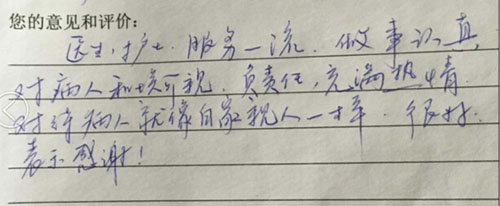 您的意见和评价:
医生,护士.服务一流.做事认真
对病人和蔼可亲.负责任,充满热情.
对待病人就像自家亲人一样.很好.
表示感谢!